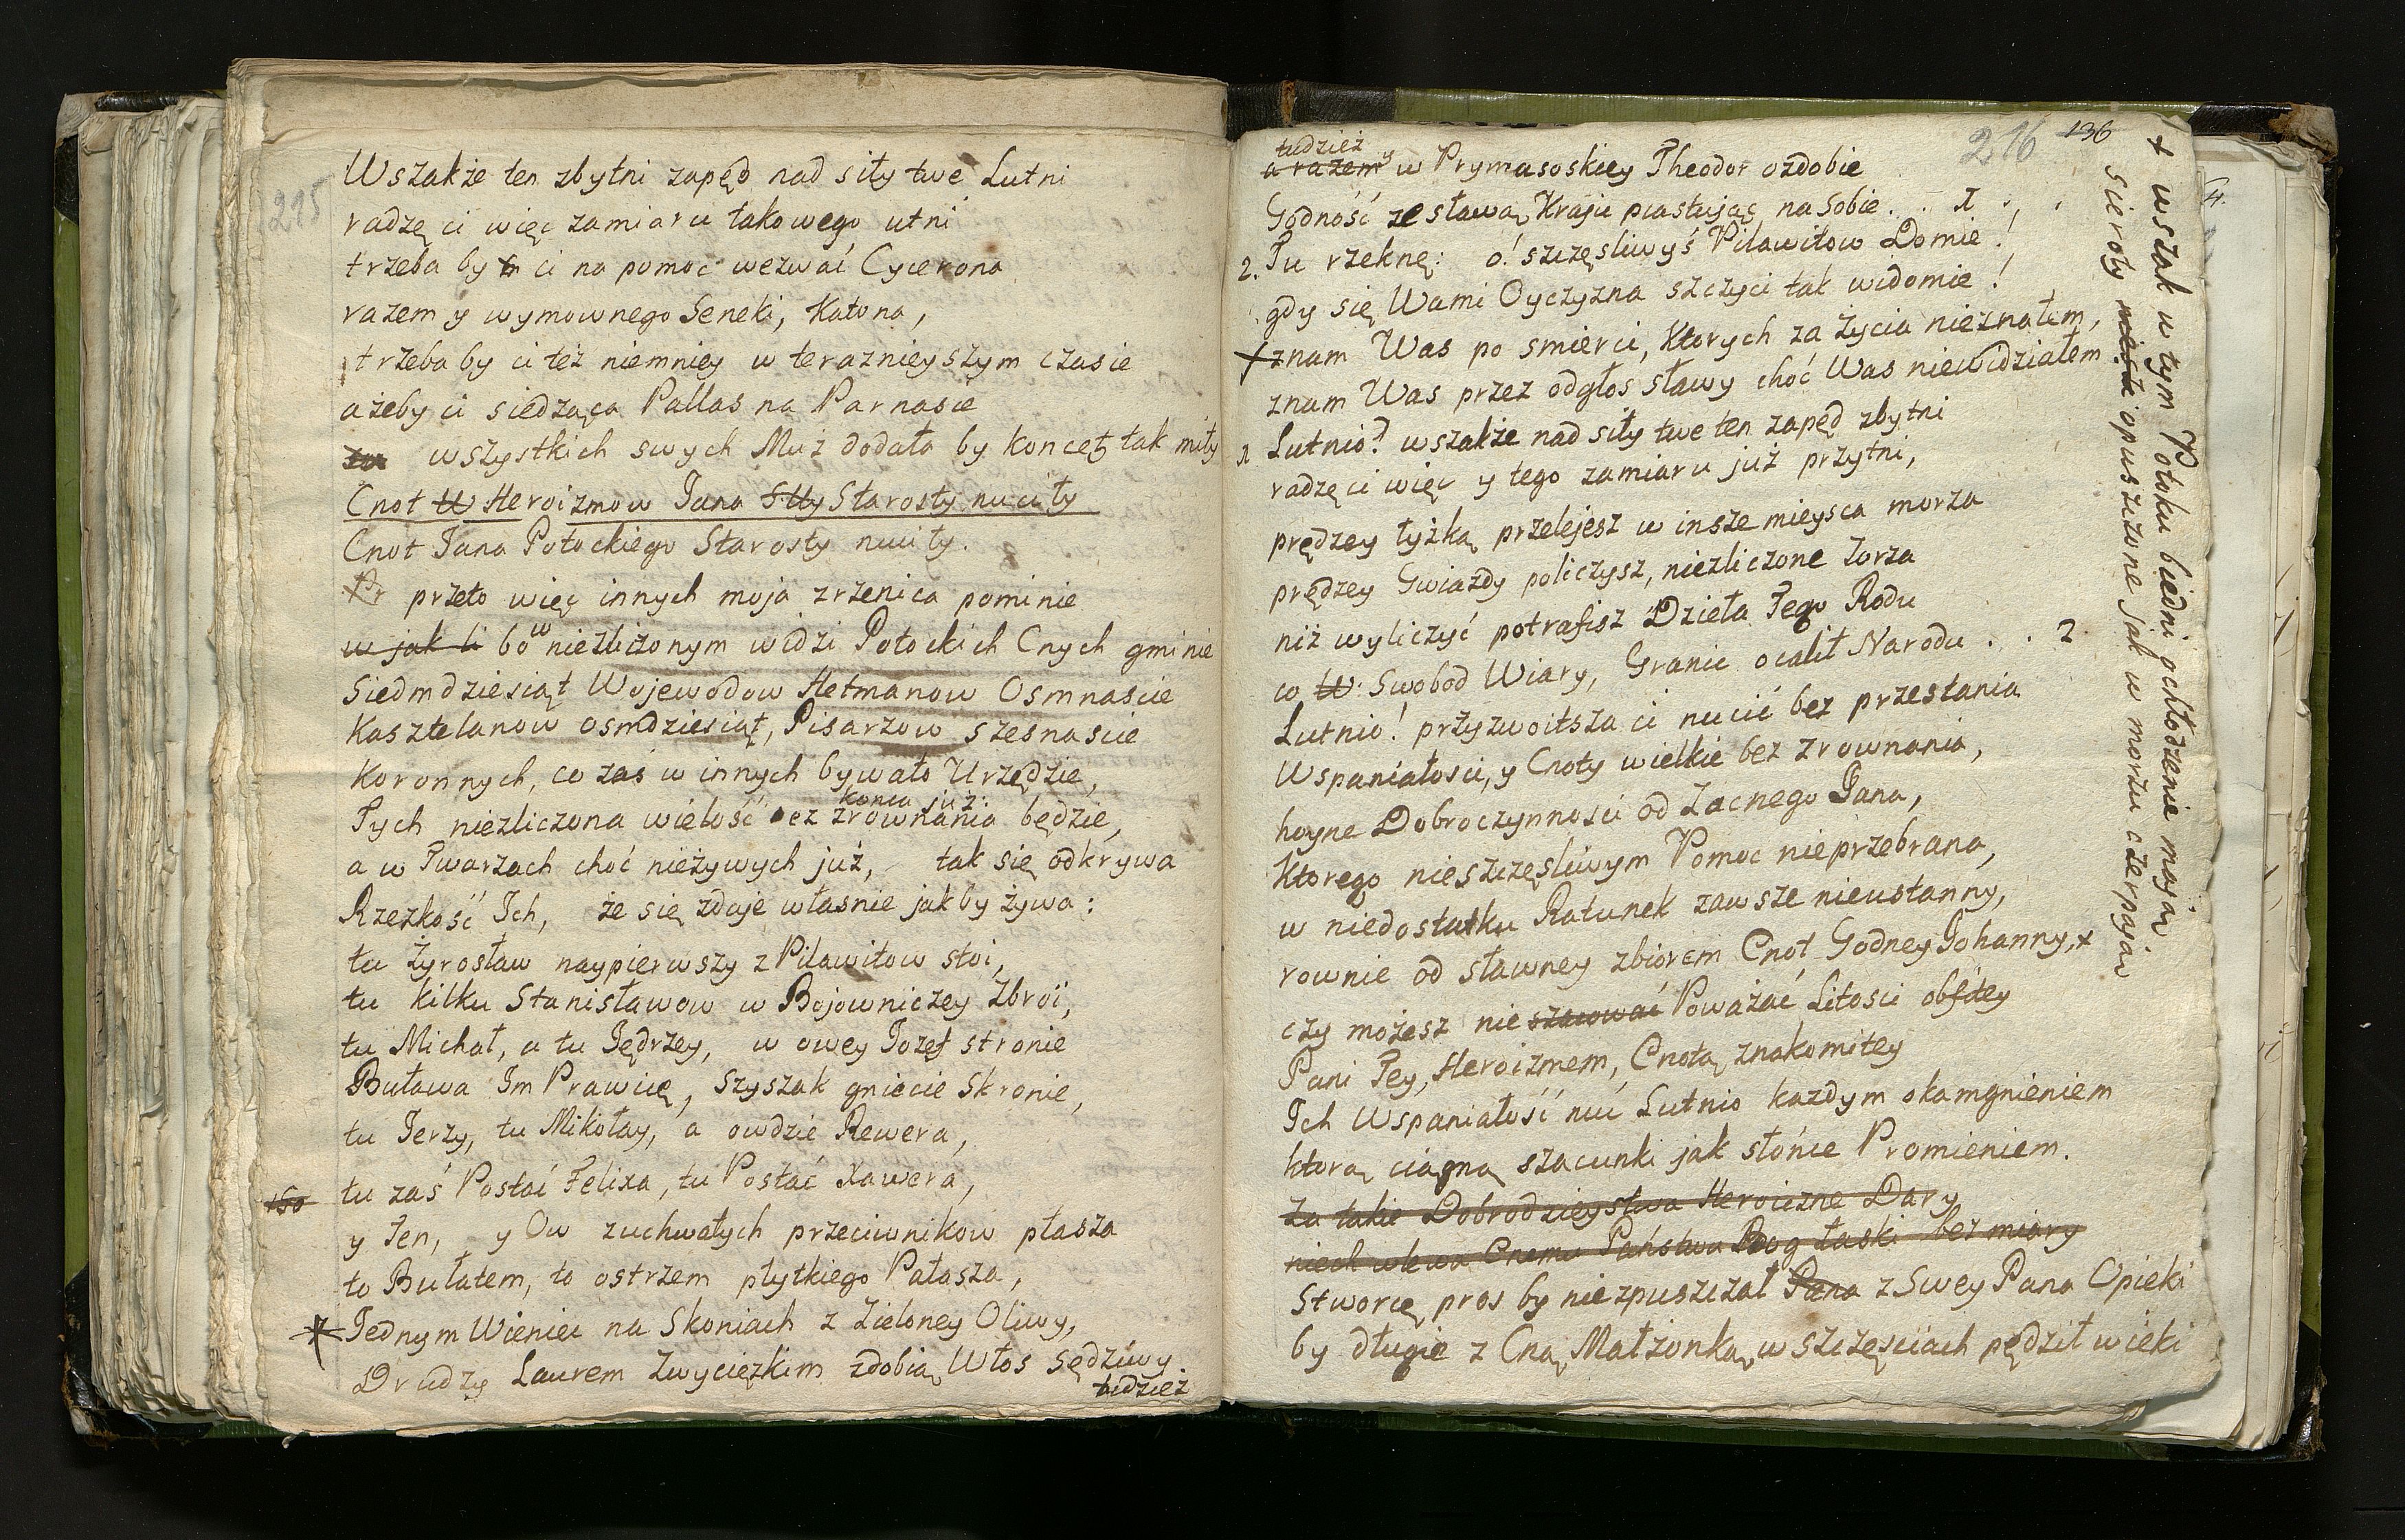 225
Wszakże ten zbytni zapęd nad siły twe Lutni
radzę ci więc zamiaru takowego utni
trzeba by ci na pomoc wezwać Cycerona
razem y wymownego Seneki, Katona,
trzeba by ci też niemniey w teraznieyszym czasie
ażeby ci siedząca Pallas na Parnasie
wszystkich swych Muz dodała by koncept tak miły
Cnot W Heroizmow Jana Starosty nuciły
Cnot Jana Potockiego Starosty nuciły.
Pr przeto więc innych moja zrzenica pominie
w jak li bo w niezliczonym widzi Potockich Cnych gminie
Siedmdziesiąt Wojewodow Hetmanow Osmnaście
Kasztelanow osmdziesiąt, Pisarzow szesnascie
Koronnych, co zaś w innych bywało Urzędzie,
konca już
Tych niezliczona wielość bez zrownania będzie,
a w Twarzach choć nieżywych już, tak się odkrywa
Rzezkość Ich, że się zdaje własnie jakby żywa:
tu Żyrosław naypierwszy z Pilawitow stoi,
tu kilku Stanisławow w Bojowniczey Zbroi,
tu Michał, a tu Jędrzey, w owey Jozef stronie
Buława Im Prawicę, Szyszak gniecie Skronie,
tu Jerzy, tu Mikołay, a owdzie Rewera,
150 tu zaś Postać Felixa, tu Postać Xawera,
y Ten, y Ow zuchwałych przeciwnikow płasza
to Bułatem, to ostrzem płytkiego Pałasza,
Jednym Wieniec na Skoniach z Zieloney Oliwy,
Drudzy Laurem Zwycięzkim zdobią Włos Sędziwy.
tudzież
216 136
tudzież
a razem y w Prymasoskiey Theodor ozdobie
Godność ze sławą Kraju piastując na Sobie . . 1 . .
2. Tu rzeknę: o! szczęsliwyś Pilawitow Domie!
gdy się Wami Oyczyzna szczyci tak widomie!
znam Was po smierci, Ktorych za życia nieznałem,
znam Was przez odgłos sławy choć Was niewidziałem
1 Lutnio? wszakże nad siły twe ten zapęd zbytni
radzę ci więc y tego zamiaru już przytni,
prędzey łyżką przelejesz w insze mieysca morza
prędzey Gwiazdy policzysz, niezliczone Zorza
niż wyliczyć potrafisz Dzieła Tego Rodu
co W Swobod Wiary, Granic ocalił Narodu . . 2
Lutnio! przyzwoitsza ci nucić bez przestania
Wspaniałosci, y Cnoty wielkie bez zrownania,
hoyne Dobroczynnosci od Zacnego Jana,
Ktorego nieszczęsliwym Pomoc nieprzebrana,
w niedostatku Ratunek zawsze nieustanny,
rownie od sławney zbiorem Cnot Godney Johanny, x
czy możesz nie szacować Poważać Litosci obfitey
Pani Tey, Heroizmem, Cnotą znakomitey
Ich Wspaniałość nuć Lutnio każdym okamgnieniem
ktorą ciągną szacunki jak słońce Promieniem.
Za takie Dobrodzieystwa Heroiczne Dary
niech wlewa Cnemu Państwu Bog łaski bez miary
Stworcę pros by niezpuszczał Pana z Swey Pana Opieki
by długie z Cną Małżonką w szczęsciach pędził wieki
x wszak w tym Potoku biedni ochłodzenie mają
Sieroty opuszczone jak w morzu czerpają